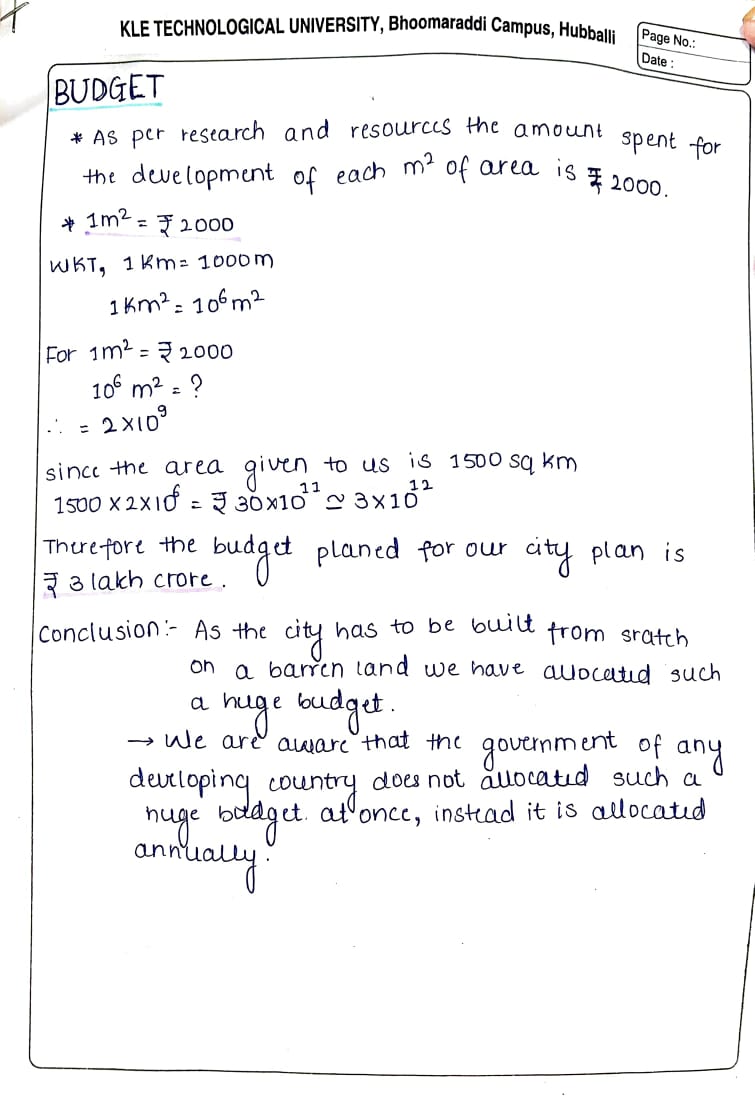 KLE TECHNOLOGICAL UNIVERSITY, Bhoomaraddi Campus, Hubballi
Page No.:
Date :
BUDGET
* As per research and resources the amount spent for
the development of each m² of area is ₹ 2000.
* 1m² = ₹ 2000
WKT, 1 Km = 1000m
1 Km² = 10⁶ m²
For 1m² = ₹ 2000
10⁶ m² = ?
∴ = 2×10⁹
since the area given to us is 1500 sq km
1500 × 2×10⁶ = ₹ 30×10¹¹ ≃ 3×10¹²
Therefore the budget planed for our city plan is
₹ 3 lakh crore.
Conclusion:- As the city has to be built from sratch
on a barren land we have allocated such
a huge budget.
→ We are aware that the government of any
developing country does not allocated such a
huge budget. at once, instead it is allocated
annually.